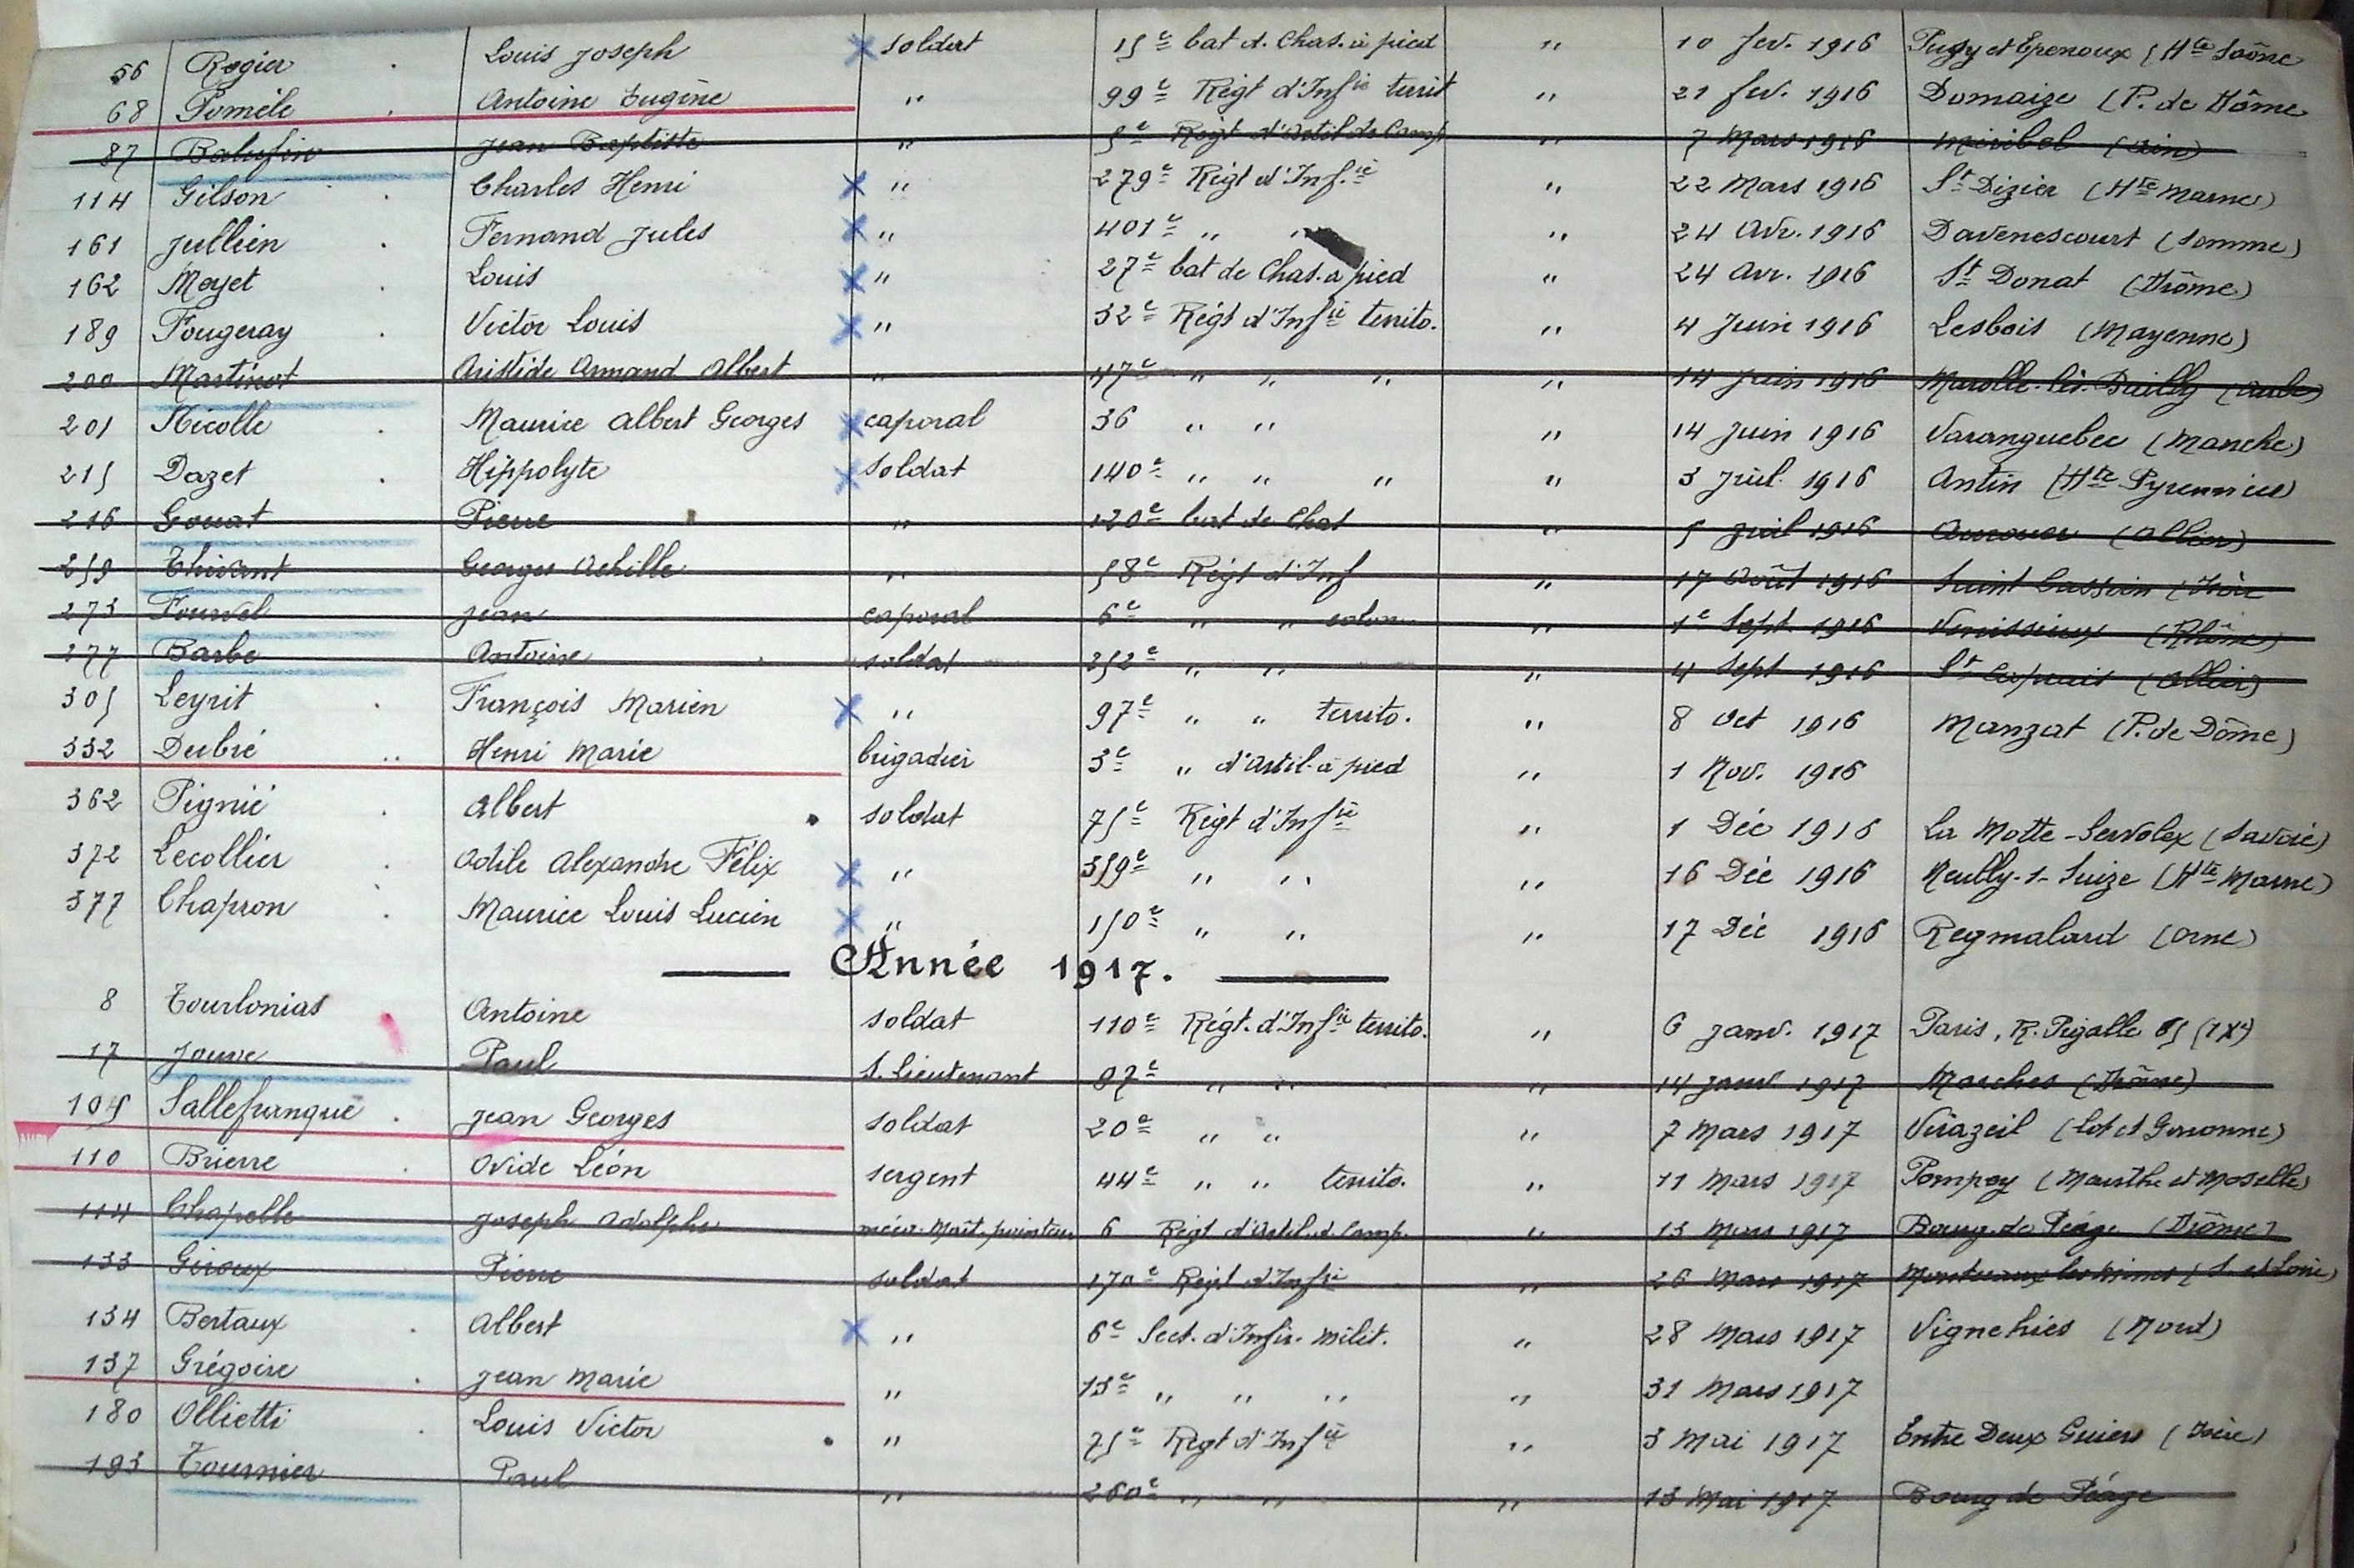 56 Rogier Louis Joseph soldat 15e bat d. Chas. à pied " 10 fev. 1916 Pusy et Epenoux (Hte Saône
68 Pomèle Antoine Eugène " 99e Régt d'Infie territ " 21 fev. 1916 Domaize (P. de Dôme
87 Balufin Jean Baptiste " 5e Régt d'Artil de Camp " 7 Mars 1916 Miribel (Ain)
114 Gilson Charles Henri " 279e Régt d'Inf.ie " 22 Mars 1916 St Dizier (Hte Marne)
161 Jullien Fernand Jules " 401e " " " 24 Avr. 1916 Davenescourt (Somme)
162 Moyet Louis " 27e bat de Chas. à pied " 24 Avr. 1916 St Donat (Drôme)
189 Fougeray Victor Louis " 32e Régt d'Infie territo. " 4 Juin 1916 Lesbois (Mayenne)
200 Martinot Aristide Armand Albert " 47e " " " " 14 Juin 1916 Marolle-les-Bailly (Aube)
201 Nicolle Maurice Albert Georges caporal 36 " " " 14 Juin 1916 Varanguebec (Manche)
215 Dazet Hippolyte soldat 140e " " " " 3 Juil. 1916 Antin (Hte Pyrennées)
216 Gouat Pierre " 120e bat de Chas " 5 Juil 1916 (Allier)
259 Thivant Georges Achille " 58e Régt d'Inf " 17 Août 1916 Saint Cassien (Isère
273 Fourvel Jean caporal 6e " " colon. " 1e Sept. 1916 Venissieux (Rhône)
277 Barbe Antoine soldat 252e " " " 4 Sept 1916 St (Allier)
305 Leyrit François Marien " 97e " " territo. " 8 Oct 1916 Manzat (P. de Dôme)
332 Dubré Henri Marie brigadier 3e " d'Artil. à pied " 1 Nov. 1916
362 Pignié Albert soldat 75e Régt d'Infie " 1 Déc 1916 La Motte-Servolex (Savoie)
372 Lecollier Adile Alexandre Félix " 359e " " " 16 Déc 1916 Neuilly-s-Suize (Hte Marne)
377 Chapron Maurice Louis Lucien " 150e " " " 17 Déc 1916 Regmalard (Orne)
Année 1917.
8 Tourlonias Antoine soldat 110e Régt. d'Infie territo. " 6 janv. 1917 Paris, R. Pigalle 65 (IXe)
17 Jouve Paul S. Lieutenant 97e " " " 14 janv 1917 Marches (Drôme)
105 Sallefranque Jean Georges soldat 20e " " " 7 Mars 1917 Virazeil (Lot et Garonne)
110 Brierre Ovide Léon sergent 44e " " territo. " 11 Mars 1917 Pompey (Meurthe et Moselle)
114 Chapelle Joseph Adolphe Maît. pointeur 6 Régt d'Artil. d. Camp. " 13 Mars 1917 Bourg-de Péage (Drôme)
133 Giroux Pierre soldat 170e Régt d'Infie " 26 Mars 1917 Montceaux les Mines (S. et Loire)
134 Bertaux Albert " 6e Sect. d'Infir. milit. " 28 Mars 1917 Vignehies (Nord)
137 Grégoire Jean Marie " 13e " " " " 31 Mars 1917
180 Ollietti Louis Victor " 75e Régt d'Infie " 3 Mai 1917 Entre Deux Guiers (Isère)
193 Tournier Paul " 260e " " " 13 Mai 1917 Bourg de Péage